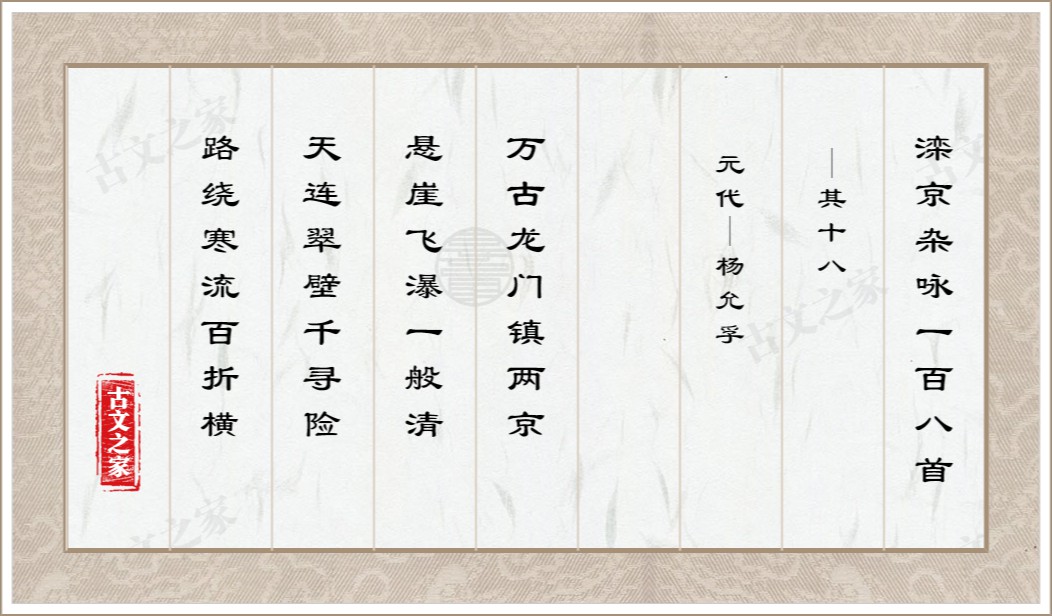 滦京杂咏一百八首
—其十八
元代—杨允孚
万古龙门镇两京
悬崖飞瀑一般清
天连翠壁千寻险
路绕寒流百折横
古文之家
古文之家
古文之家
古文之家